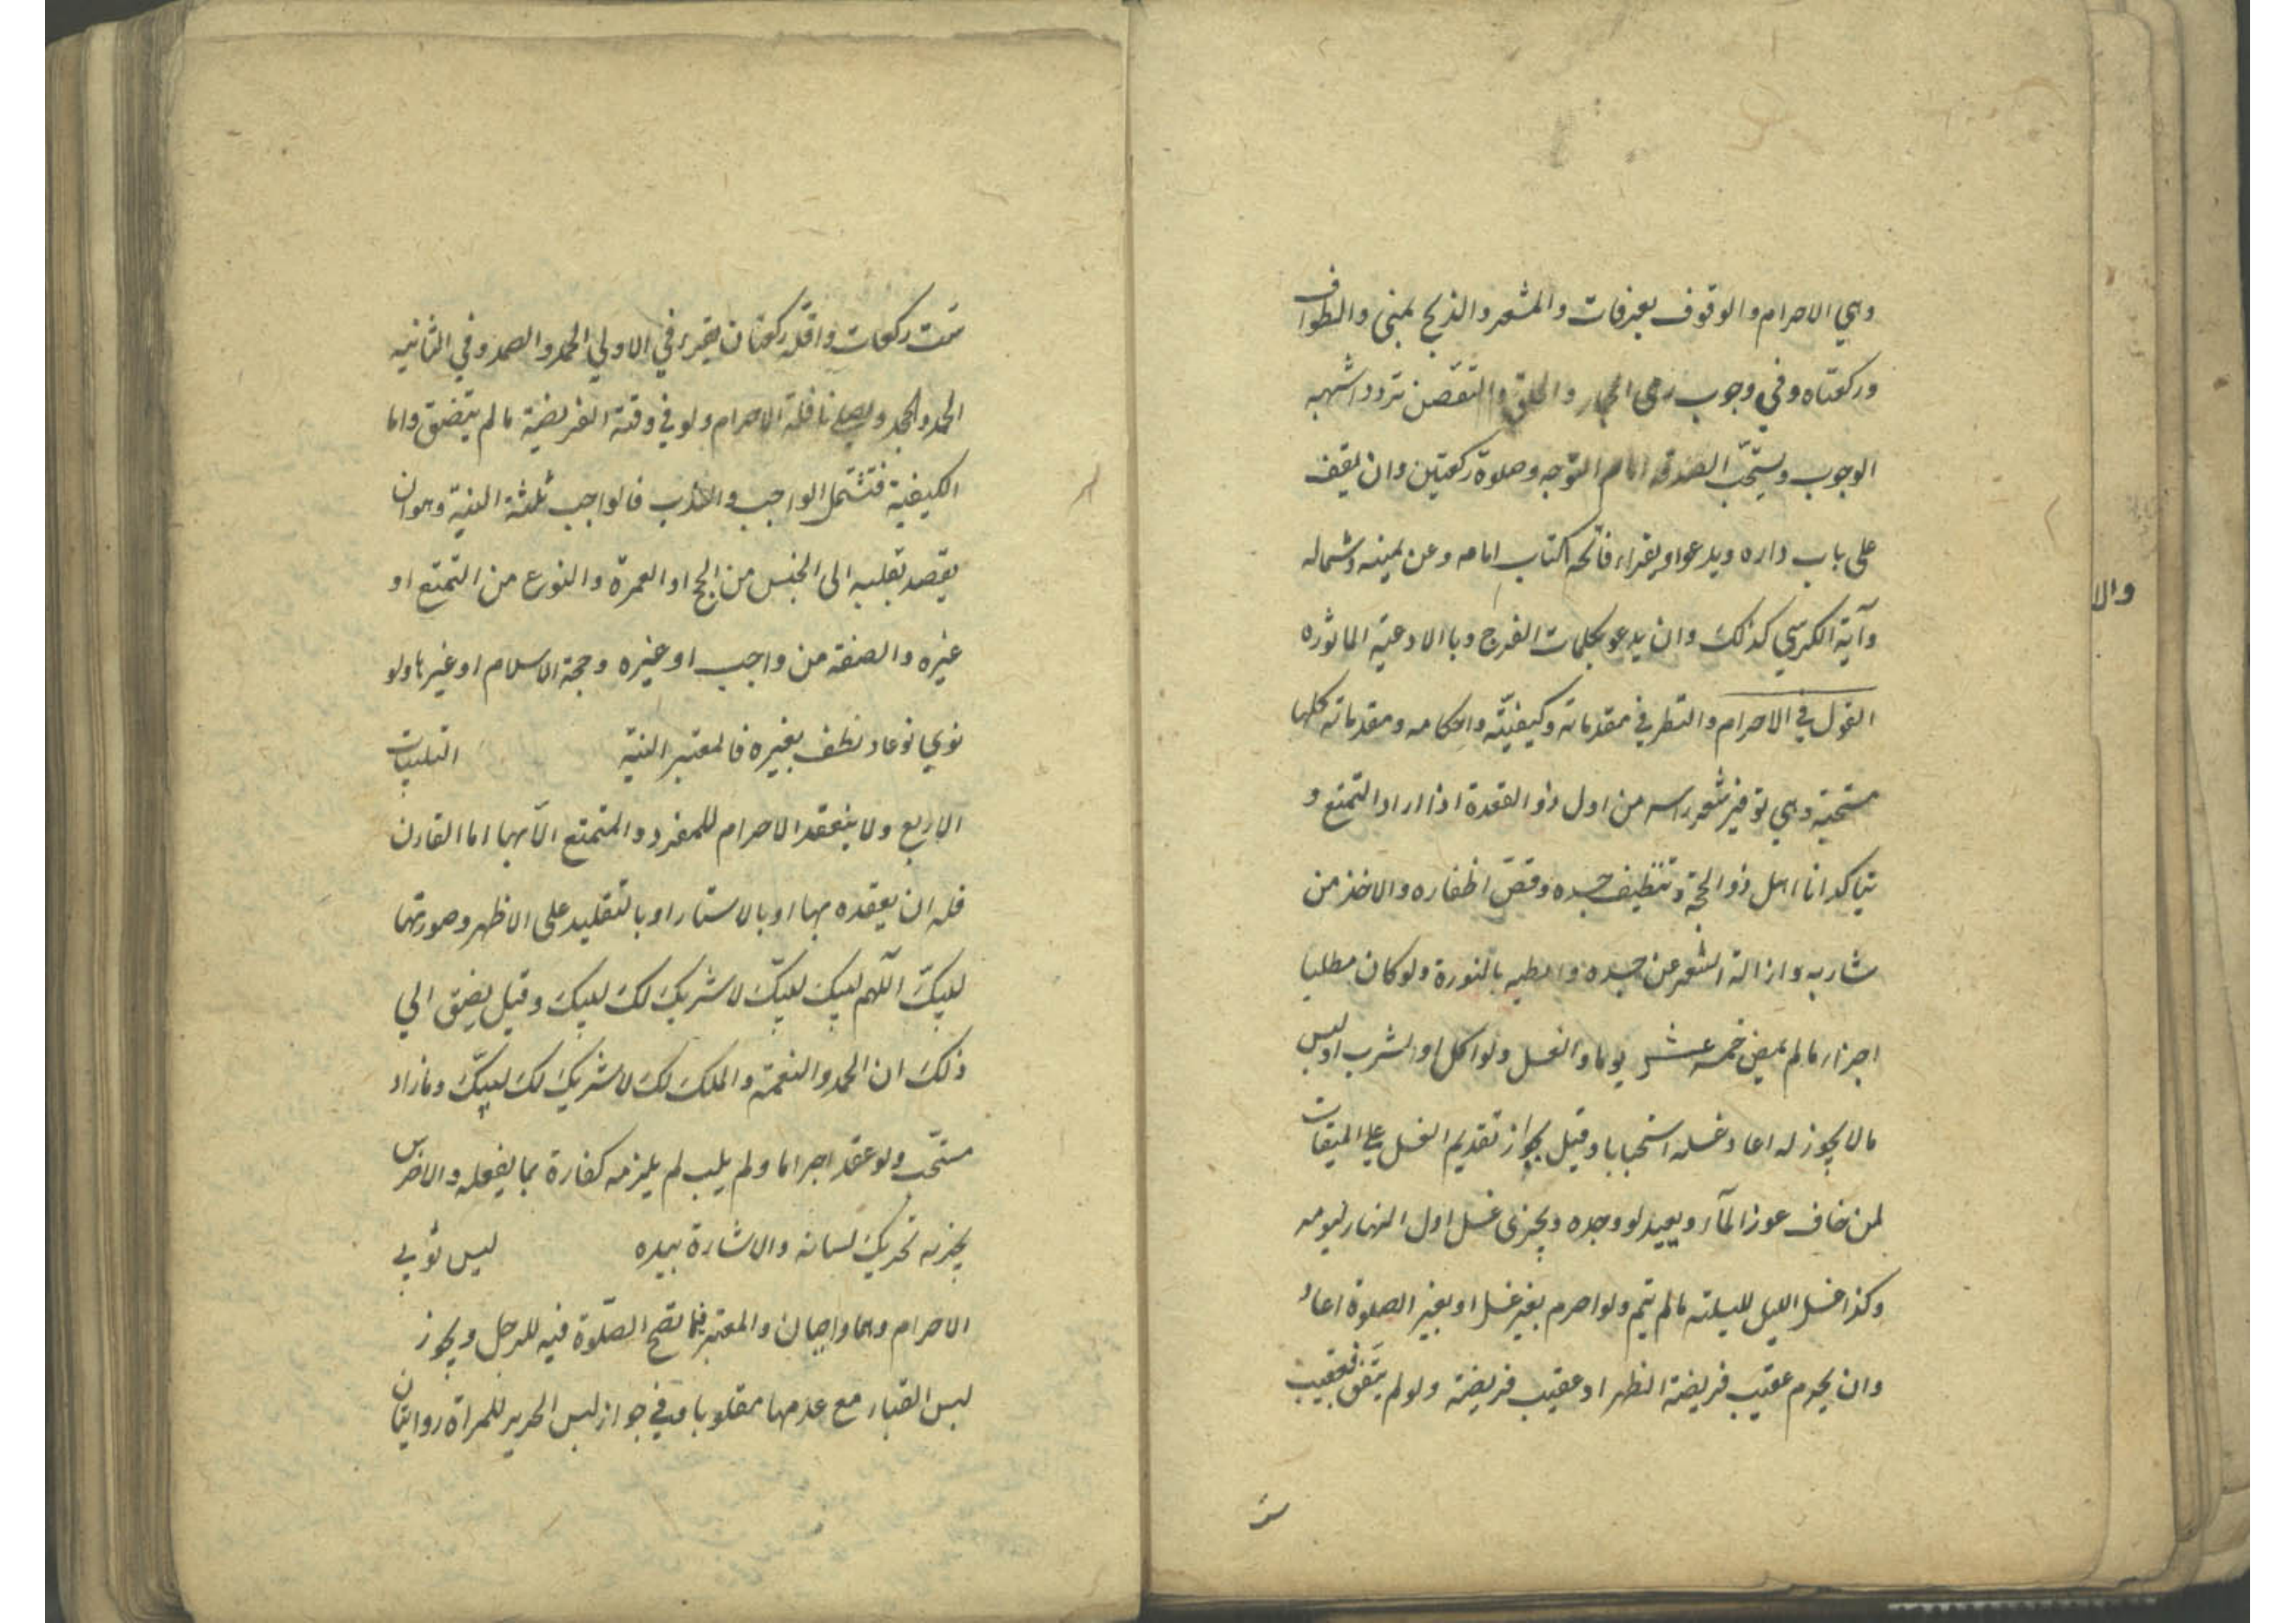 وهي الاحرام والوقوف بعرفات والمشعر والذبح بمنى والطواف
وركعتاه وفي وجوب رمى الجمار والحلق والتقصر تردد اشهبه
الوجوب ويستحبّ الصدقه امام التوّجه وصلوة ركعتين وان يقف
على باب داره ويدعوا ويقراء فاتحه الكتاب امامه وعن يمينه وشماله
وآية الكرسي كذلك وان يدعو بكلمات الفرج وبالادعية الماثوره
القول في الاحرام والنظر في مقدماته وكيفيّته واحكامه ومقدماته كلها
مستحبة وهي توفير شعر راسه من اول ذو القعدة اذا اراد التمتع و
يتاكد اذا اهل ذو الحجة وتنظيف جسده وقصّ اظفاره والاخذ من
شاربه وازالة الشعر عن جسده وابطيه بالنورة ولو كان مطليا
اجزاء مالم يمض خمسه عشر يوما والغسل ولو اكل او شرب او لبس
مالا يجوز له اعاد غسله استحبابا وقيل بجواز تقديم الغسل على الميقات
لمن خاف عوز المآء ويعيد لو وجده ويجزى غسل اول النهار ليومه
وكذا غسل الليل لليلته مالم ينم ولو احرم بغير غسل او بغير الصلوة اعاد
وان يحرم عقيب فريضة الظهر او عقيب فريضة ولو لم يتفق فعقيب
ست
ستّ ركعات واقلّه ركعتان يقراء في الاولي الحمد والصمد وفي الثانيه
الحمد والجحد ويصلى نافلة الاحرام ولو في وقت الفريضة مالم يتضيق واما
الكيفية فتشتمل الواجب والندب فالواجب ثلثة النية وهو ان
يقصد بقلبه الى الجنس من الحج او العمرة والنوع من التمتع او
غيره والصفة من واجب او غيره وحجة الاسلام او غيرها ولو
نوي نوعا ونطق بغيره فالمعتبر النية التلبيات
الاربع ولا ينعقد الاحرام للمفرد والمتمتع الّا بها اما القارن
فله ان يعقده بها او بالاشعار او بالتقليد على الاظهر وصورتها
لبيكّ اللّهم لبيك لبيكّ لا شريك لك لبيك وقيل يضيف الي
ذلك ان الحمد والنعمة والملك لك لا شريك لك لبيكّ وما زاد
مستحّب ولو عقد احراما ولم يلب لم يلزمه كفارة بما يفعله والاخرس
يجزيه تحريك لسانه والاشارة بيده لبس ثوبي
الاحرام وهما واجبان والمعتبر ما تصح الصلوة فيه للرجل ويجوز
لبس القباء مع عدمها مقلوبا وفي جواز لبس الحرير للمراة روايتان
والا